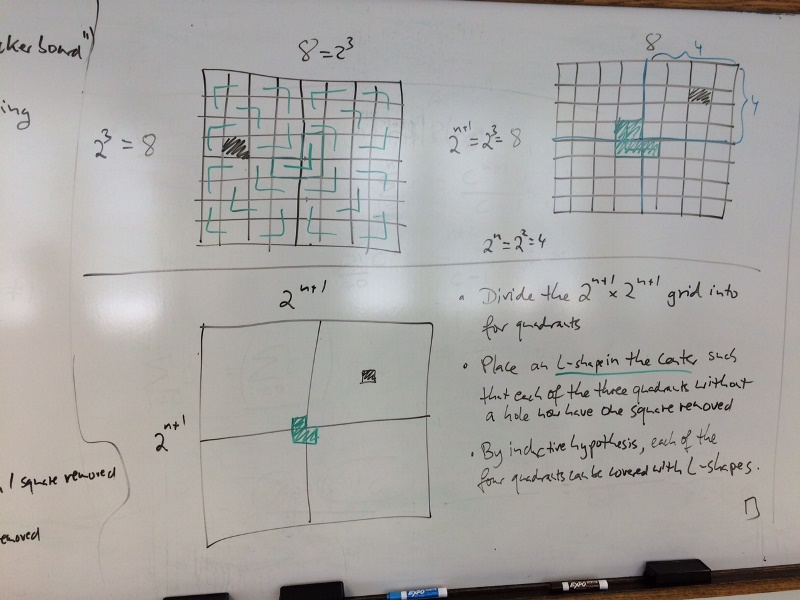 ckerboard")
ing
8 = 2³
2³ = 8
8
4
4
2ⁿ⁺¹ = 2³ = 8
2ⁿ = 2² = 4
2ⁿ⁺¹
2ⁿ⁺¹
• Divide the 2ⁿ⁺¹ × 2ⁿ⁺¹ grid into
four quadrants
• Place an L-shape in the center such
that each of the three quadrants without
a hole now have one square removed
• By inductive hypothesis, each of the
four quadrants can be covered with L-shapes.
1 square removed
emoved
EXPO
EXPO